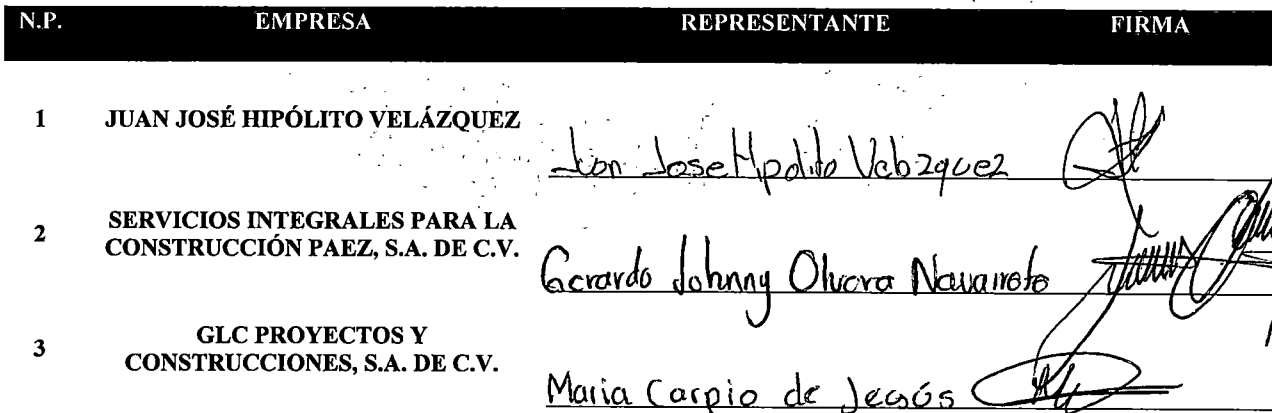 N.P. EMPRESA REPRESENTANTE FIRMA
1 JUAN JOSÉ HIPÓLITO VELÁZQUEZ
Juan Jose Hipolito Velazquez
2 SERVICIOS INTEGRALES PARA LA
CONSTRUCCIÓN PAEZ, S.A. DE C.V.
Gerardo Johnny Olvera Navarrete
3 GLC PROYECTOS Y
CONSTRUCCIONES, S.A. DE C.V.
Maria Carpio de Jesús